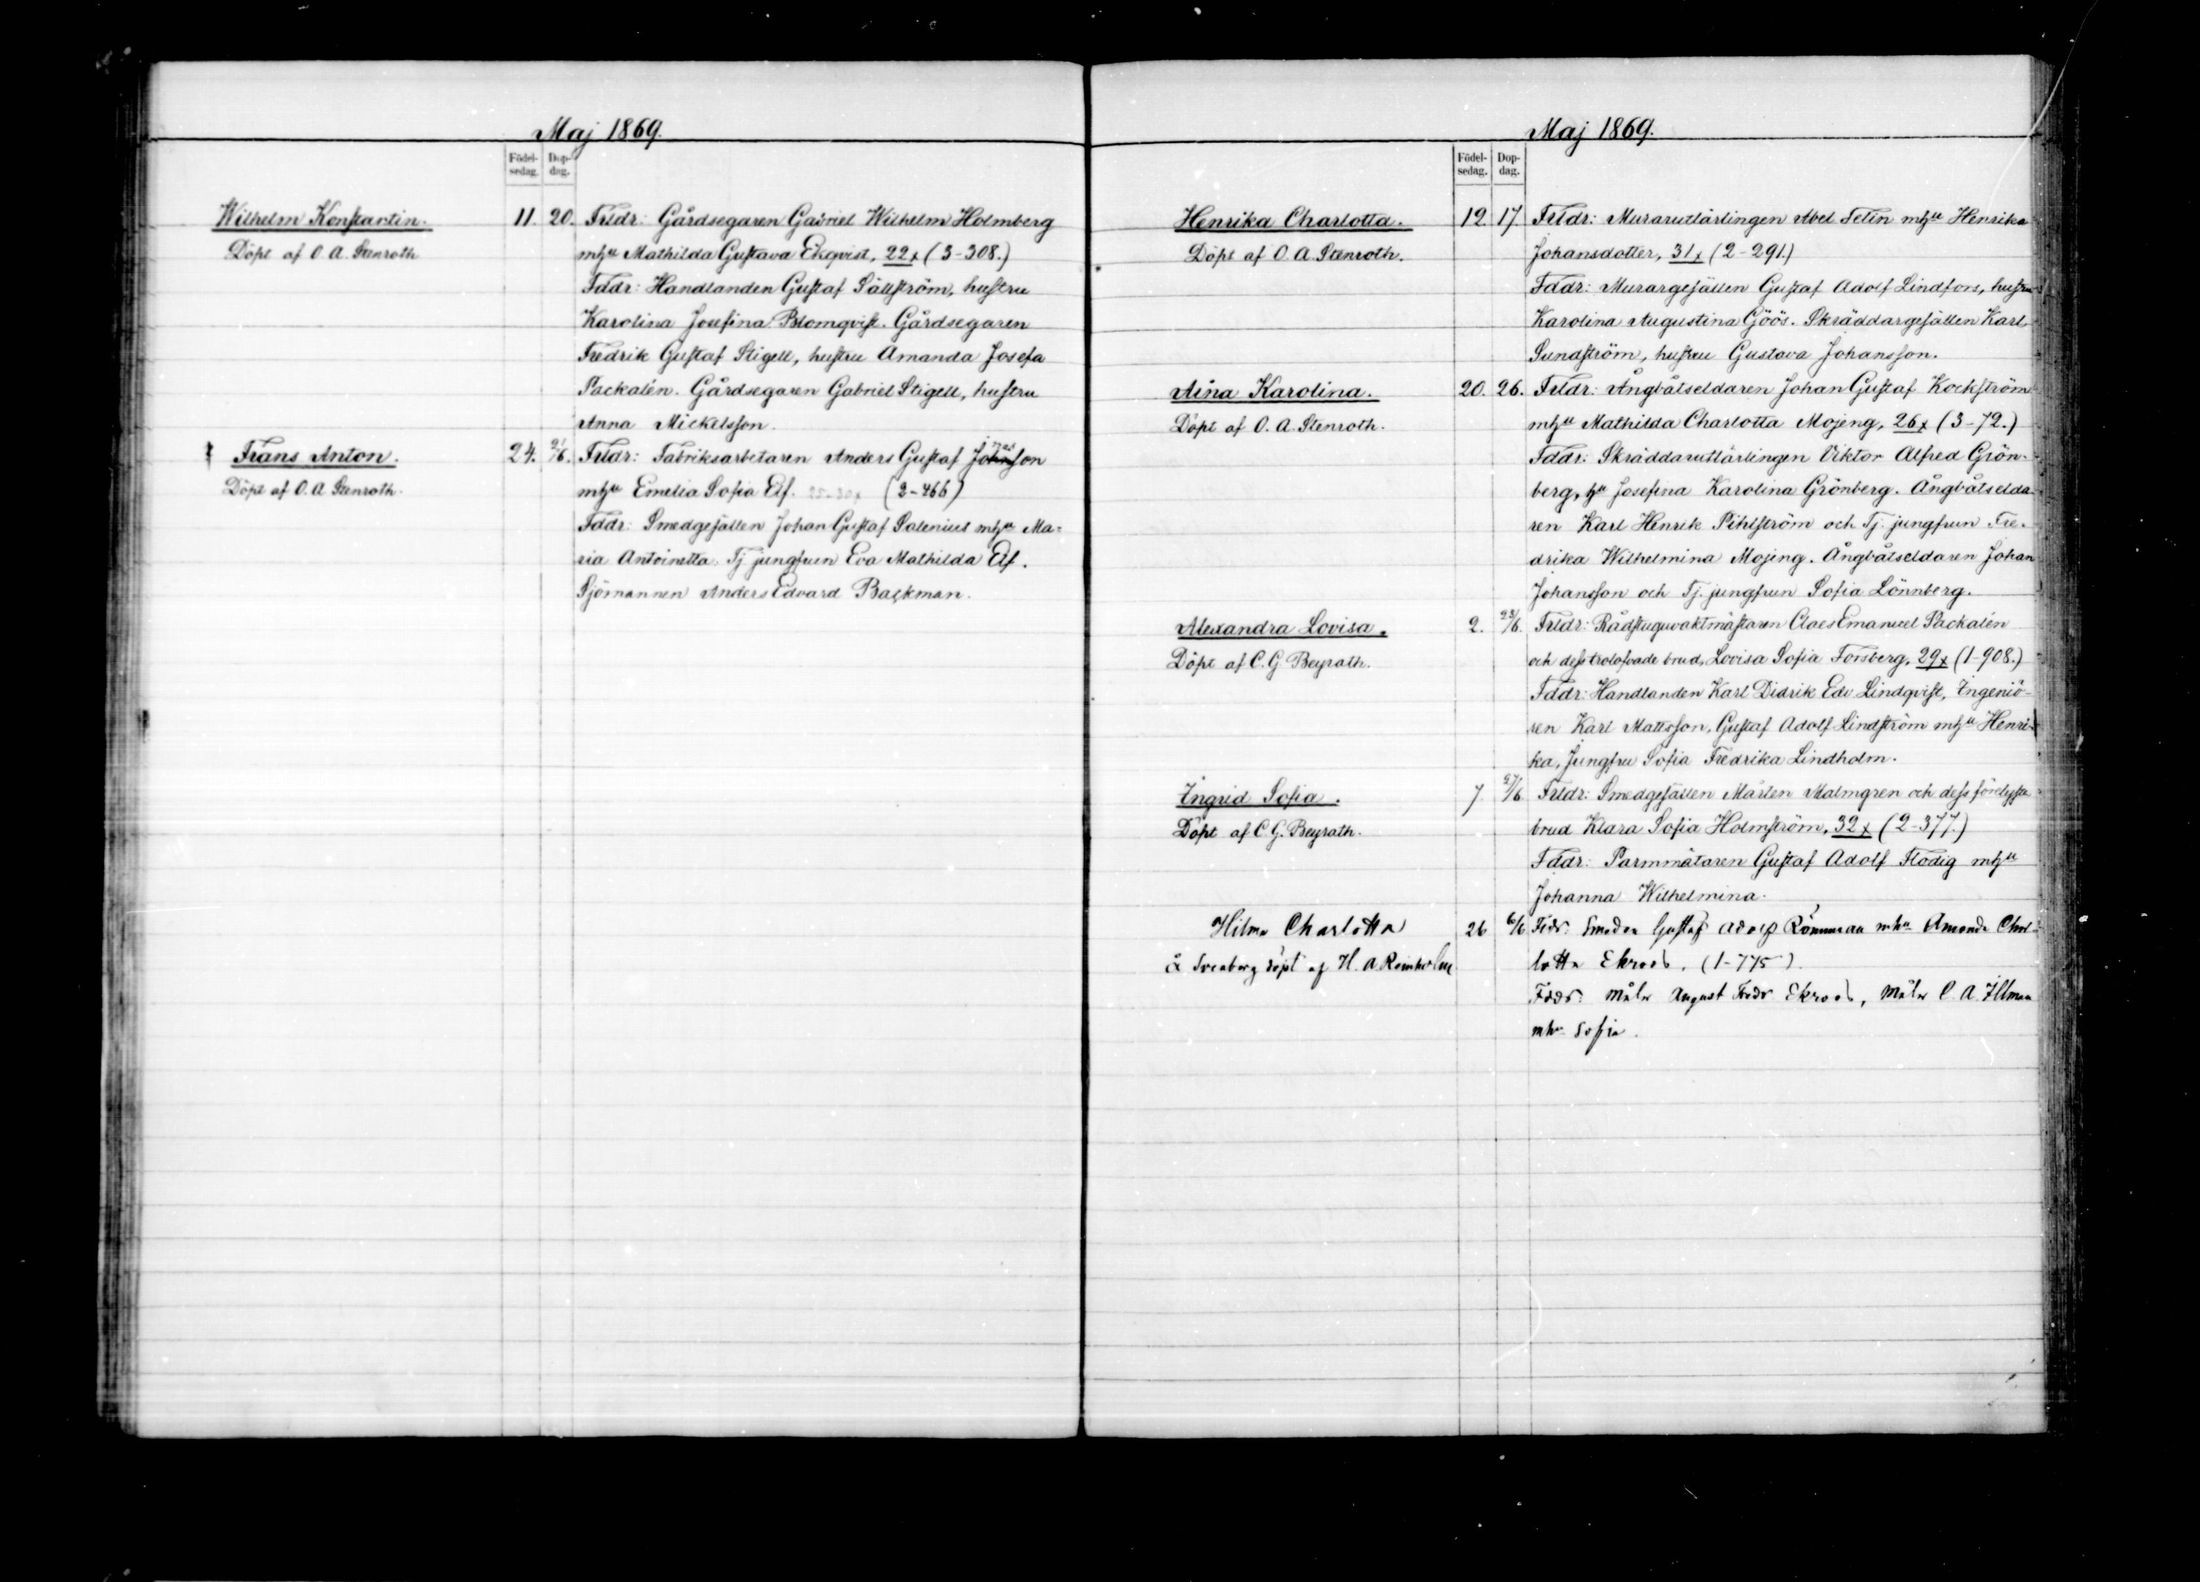 Maj 1869.
Födel-
sedag.
Dop-
dag.
Wilhelm Konstantin.
Döpt af O. A. Stenroth
11. 20.
Frldr: Gårdsegaren Gabriel Wilhelm Holmberg
mhu Mathilda Gustava Ekqvist, 22x (3-308.)
Fddr: Handlanden Gustaf Sällström, hustru
Karolina Josefina Blomqvist. Gårdsegaren
Fredrik Gustaf Stigell, hustru Amanda Josefa
Packalén. Gårdsegaren Gabriel Stigell, hustru
Anna Mickelsson.
Frans Anton.
Döpt af O. A. Stenroth.
24.
Frldr: Fabriksarbetaren Anders Gustaf
mhu Emelia Sofia Elf. 25-30x (2-466)
Fddr: Smedgesällen Johan Gustaf Salenius mhu Ma-
ria Antoinetta. Tj. jungfrun Eva Mathilda Elf.
Sjömannen Anders Edvard Backman.
Maj 1869.
Födel-
sedag.
Dop-
dag.
Henrika Charlotta.
Döpt af O. A. Stenroth.
12. 17.
Frldr: Murarutlärlingen Abel Felin mhu Henrika
Johansdotter, 31x (2-291.)
Fddr: Murargesällen Gustaf Adolf Lindfors, hustru
Karolina Augustina Göös. Skräddargesällen Karl
Sundström, hustru Gustava Johansson.
Aina Karolina.
Döpt af O. A. Stenroth.
20. 26.
Frldr: Ångbåtseldaren Johan Gustaf Kockström
mhu Mathilda Charlotta Mojeng, 26x (3-72.)
Fddr: Skräddarutlärlingen Viktor Alfred Grön-
berg, hu Josefina Karolina Grönberg. Ångbåtselda-
ren Karl Henrik Pihlström och Tj. jungfrun Fre-
drika Wilhelmina Mojing. Ångbåtseldaren Johan
Johansson och Tj. jungfrun Sofia Lönnberg.
Alexandra Lovisa.
Döpt af C. G. Beyrath.
2. 23/6.
Frldr: Rådstuguvaktmästaren Claes Emanuel Packalén
och dess trolofvade brud, Lovisa Sofia Forsberg, 29x (1-908.)
Fddr: Handlanden Karl Didrik Edv Lindqvist, Ingeniö-
ren Karl Mattsson, Gustaf Adolf Lindström mhu Henri-
ka, Jungfru Sofia Fredrika Lindholm.
Ingrid Sofia.
Döpt af C. G. Beyrath.
7. 27/6
Frldr: Smedgesällen Mårten Malmgren och dess förelysta
brud Klara Sofia Holmström, 32x (2-377.)
Fddr: Parmmätaren Gustaf Adolf Flodig mhu
Johanna Wilhelmina.
Hilma Charlotta
å Sveaborg döpt af H. A. Reinholm
26 6/6
Smeden Gustaf Adolf Rönnman mhu Amanda Char-
lotta Ekroos. (1-775).
Fddr: Målar August Fredr Ekroos, Målar C. A. Illman
mhu Sofia.